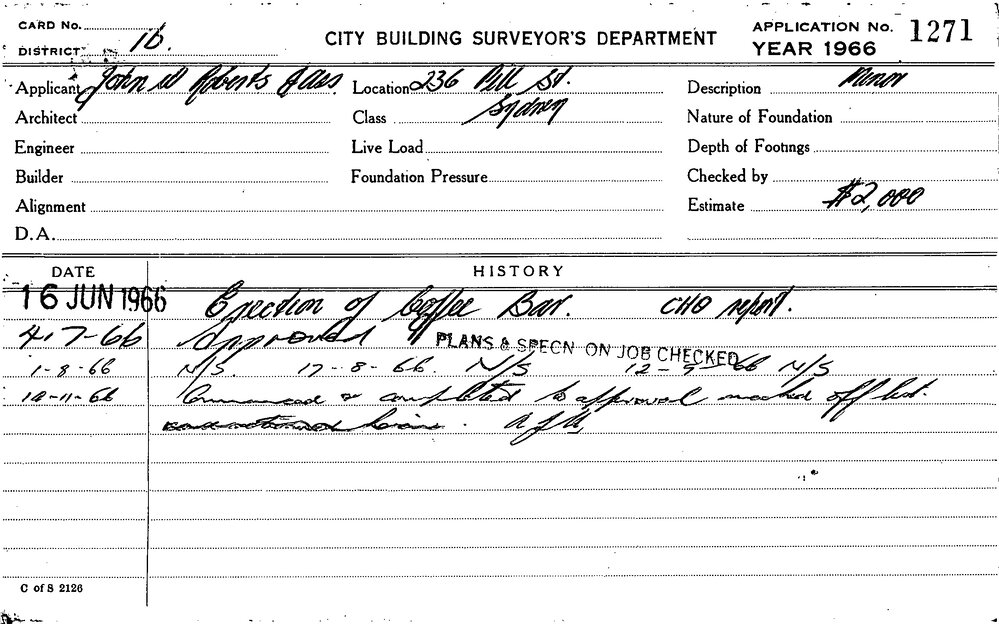 CARD No. 1b.
DISTRICT
CITY BUILDING SURVEYOR'S DEPARTMENT
APPLICATION No. 1271
YEAR 1966
Applicant John W Roberts & Ass
Location 236 Pitt St. Sydney
Description Minor
Architect
Class
Nature of Foundation
Engineer
Live Load
Depth of Footings
Builder
Foundation Pressure
Checked by
Alignment
Estimate $2,000
D.A.
DATE HISTORY
16 JUN 1966 Erection of Coffee Bar. CHO report.
4-7-66 Approved PLANS & SPECN ON JOB CHECKED
1-8-66 N/S. 17-8-66. N/S 12-9-66 N/S
-11-66 Commenced & completed to approval marked off list.
C of S 2126